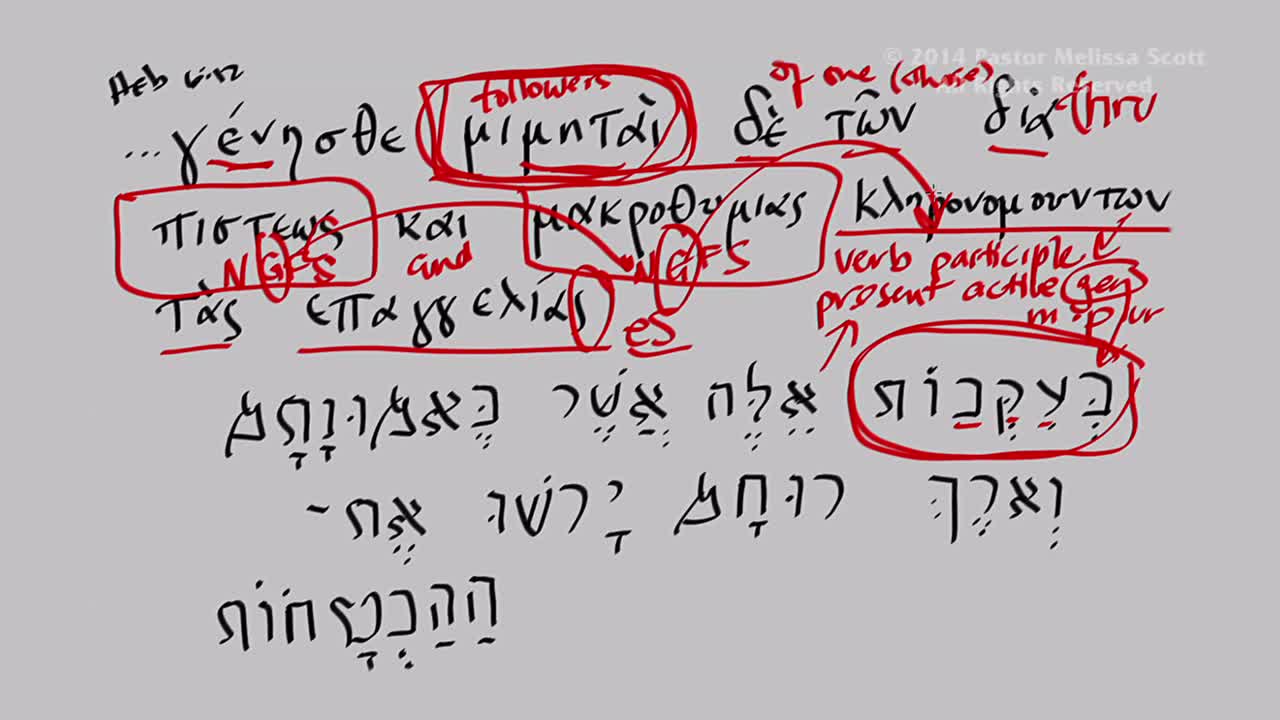 © 2014 Pastor Melissa Scott
All Rights Reserved
Heb 6:12
followers
of one (those)
...γένησθε μιμηταὶ δὲ τῶν διὰ thru
πιστεως και μακροθυμιας κληρονομουντων
NGFS and NGFS verb participle
τὰς επαγγελίας es present active gen
m plur
בְּעִקְּבוֹת אֵלֶּה אֲשֶׁר בֶּאֱמוּנָתָם
וְאֹרֶךְ רוּחָם יָרְשׁוּ אֶת־
הַהַבְטָחוֹת